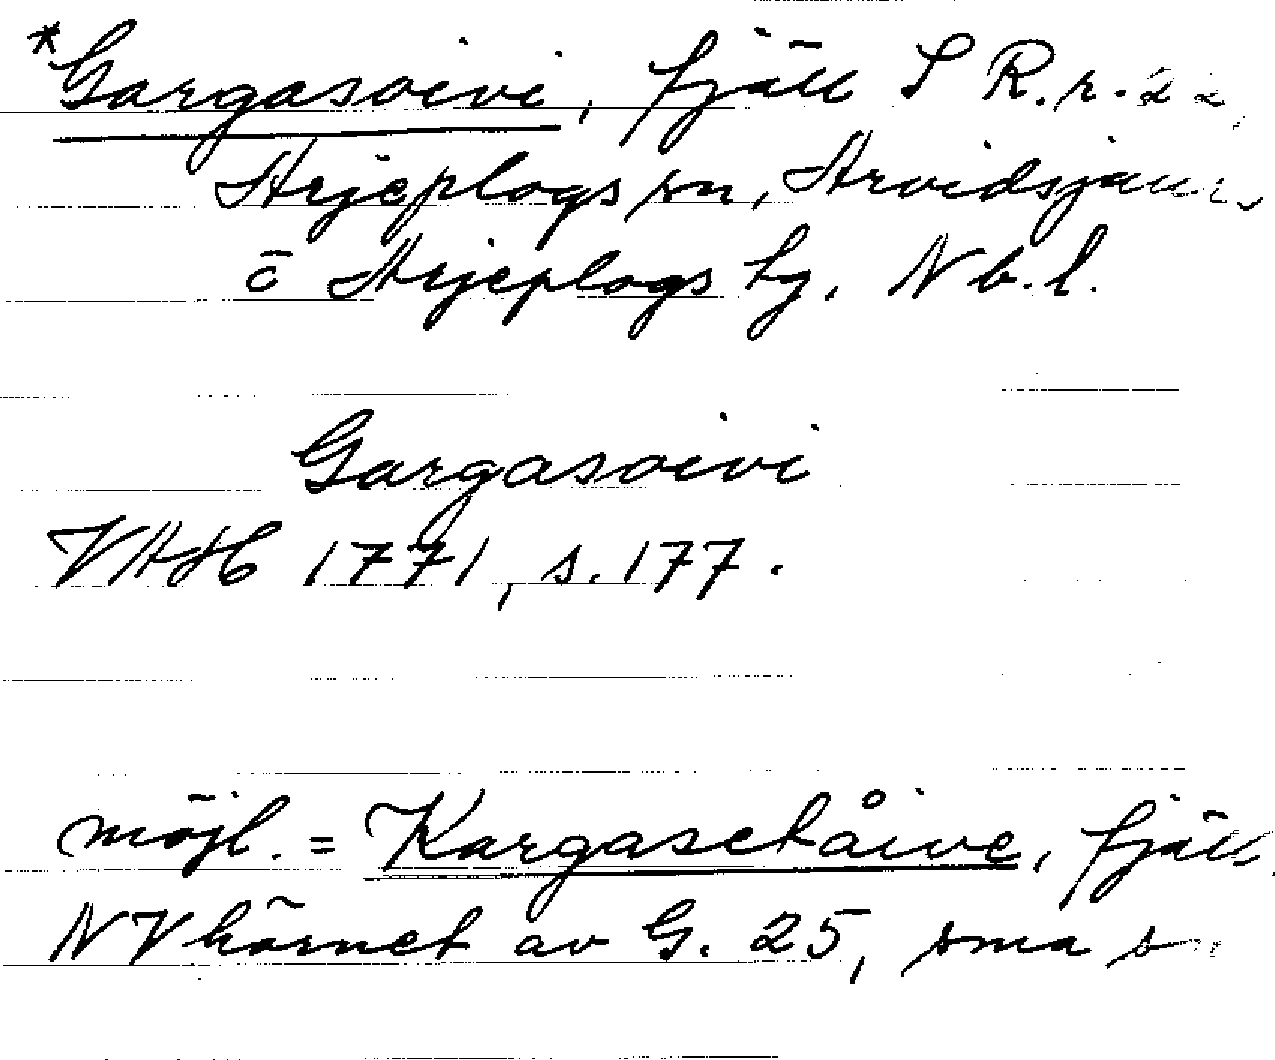 *Gargasoivi, fjäll S R.r. 22,
Arjeplogs sn, Arvidsjaurs
o Arjeplogs tg. Nb.l.
Gargasoivi
VAH 1771, s. 177.
möjl. = Kargasetåive, fjäll
NV hörnet av G. 25, sma sn